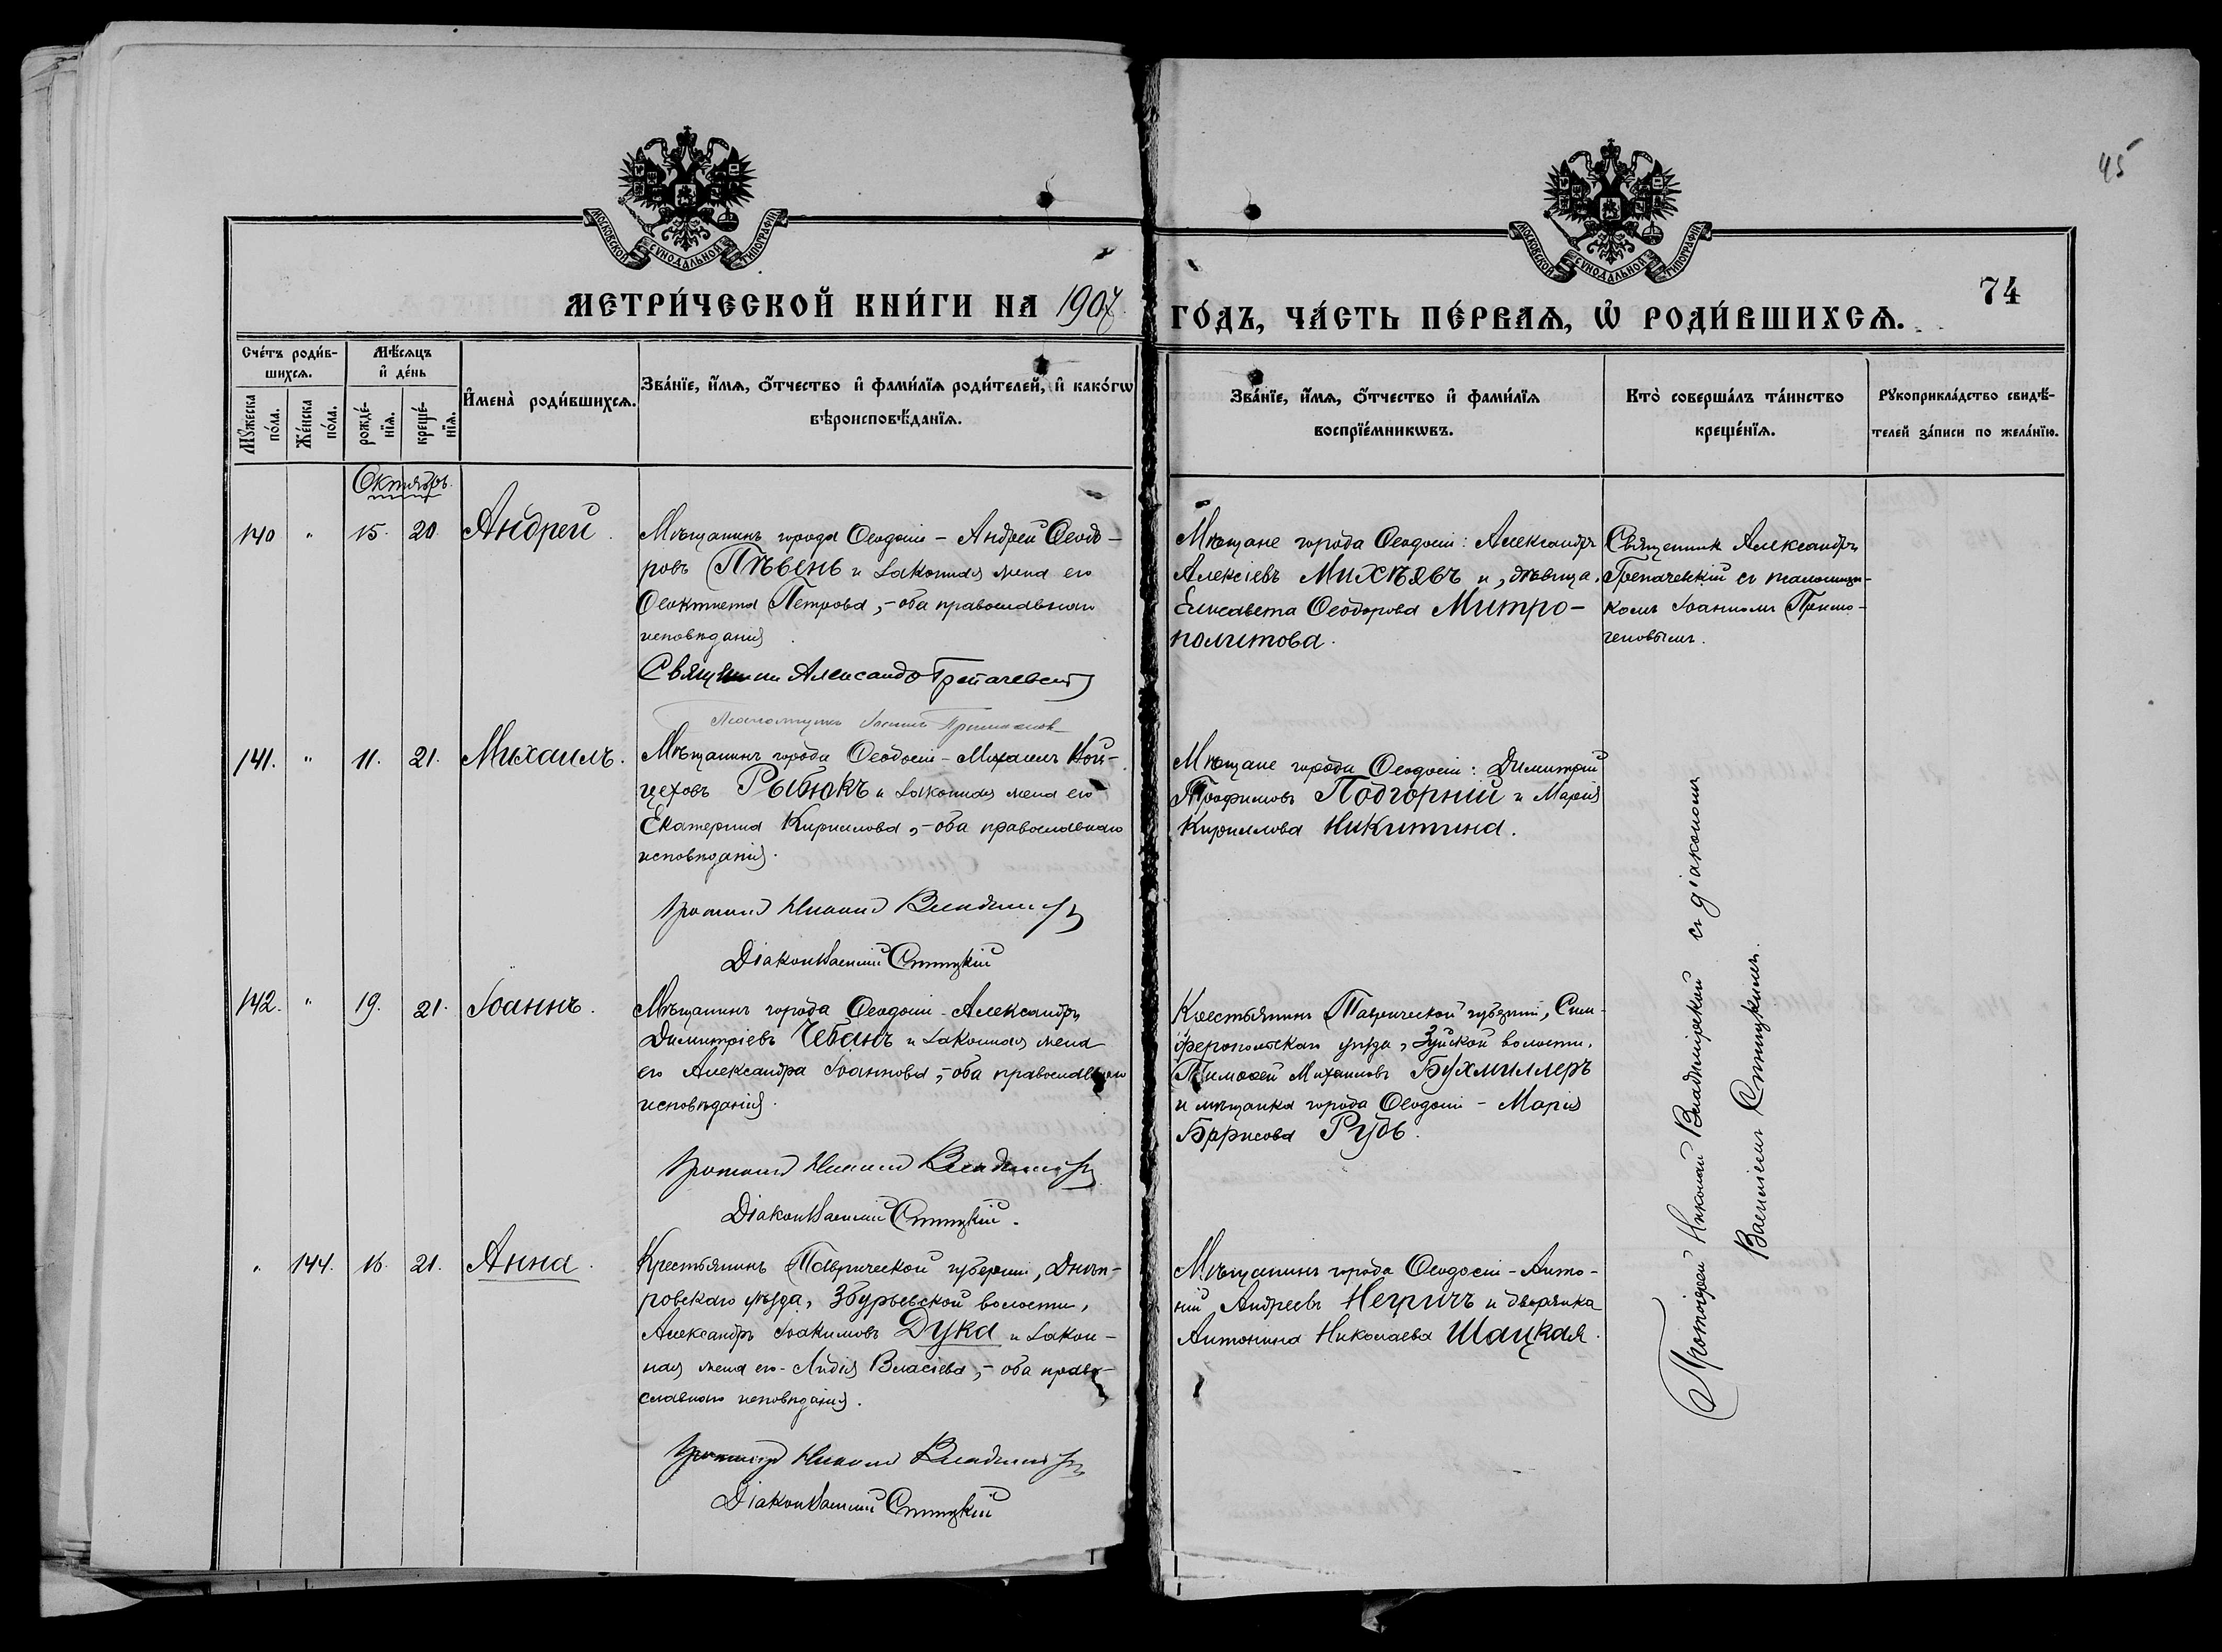 45
МОСКОВСКОЙ СУНОДАЛЬНОЙ ТИПОГРАФІИ
МОСКОВСКОЙ СУНОДАЛЬНОЙ ТИПОГРАФІИ
74
МЕТРИ́ЧЕСКОЙ КНИ́ГИ НА 1907
ГО́ДЪ, ЧА́СТЬ ПЕ́РВАѦ, Ѡ҆ РОДИ́ВШИХСѦ.
Сче́тъ роди́в-
шихсѧ.
Мѣ́сѧцъ
и҆ де́нь
И҆мена̀ роди́вшихсѧ.
Зва́нїе, и҆́мѧ, ѻ҆́тчество и҆ фами́лїѧ роди́телей, и҆ како́гѡ
вѣроисповѣ́данїѧ.
Мꙋ́жеска
по́ла.
Же́нска
по́ла.
рожде́-
нїѧ.
креще́-
нїѧ.
Зва́нїе, и҆́мѧ, ѻ҆́тчество и҆ фами́лїѧ
воспрїе́мникѡвъ.
Кто̀ соверша́лъ та́инство
креще́нїѧ.
Рꙋкоприкла́дство свидѣ́-
телей за́писи по жела́нїю.
Октябрь.
140 " 15. 20. Андрей.
Мѣщанинъ города Ѳеодосіи – Андрей Ѳеодо-
ровъ Пѣвень и законная жена его
Ѳеоктиста Петрова, – оба православнаго
исповѣданія
Священникъ Александръ Трепачевскій
Псаломщикъ Іоаннъ
Мѣщане города Ѳеодосіи: Александръ
Алексіевъ Михѣевъ и, дѣвица,
Елисавета Ѳеодорова Митро-
политова.
Священникъ Александръ
Трепачевскій съ псаломщи-
комъ Іоанномъ
141. " 11. 21. Михаилъ.
Мѣщанинъ города Ѳеодосіи – Михаилъ Вой-
цеховъ Рыбюкъ и законная жена его
Екатерина Кириллова, – оба православнаго
исповѣданія.
Протоіерей Николай Владимірскій
Діаконъ Василій Ститукій
Мѣщане города Ѳеодосіи: Димитрій
Трофимовъ Подгорній и Марія
Кириллова Никитина.
142. " 19. 21. Іоаннъ.
Мѣщанинъ города Ѳеодосіи – Александръ
Димитріевъ Чебанъ и законная жена
его Александра Іоаннова, – оба православнаго
исповѣданія.
Протоіерей Николай Владимірскій
Діаконъ Василій Ститукій.
Крестьянинъ Таврической губерніи, Сим-
феропольскаго уѣзда, Зуйской волости,
Тимоѳей Михаиловъ Бухмиллеръ
и мѣщанка города Ѳеодосіи – Марія
Борисова Рудь.
" 144. 16. 21. Анна.
Крестьянинъ Таврической губерніи, Днѣп-
ровскаго уѣзда, Збурьевской волости,
Александръ Іоакимовъ Дука и закон-
ная жена его – Лидія Власіева, – оба право-
славнаго исповѣданія.
Протоіерей Николай Владимірскій
Діаконъ Василій Ститукій
Мѣщанинъ города Ѳеодосіи – Анто-
ній Андреевъ Негричъ и дворянка
Антонина Николаева Шацкая.
Протоіерей Николай Владимірской съ діакономъ
Василіемъ Ститукимъ.